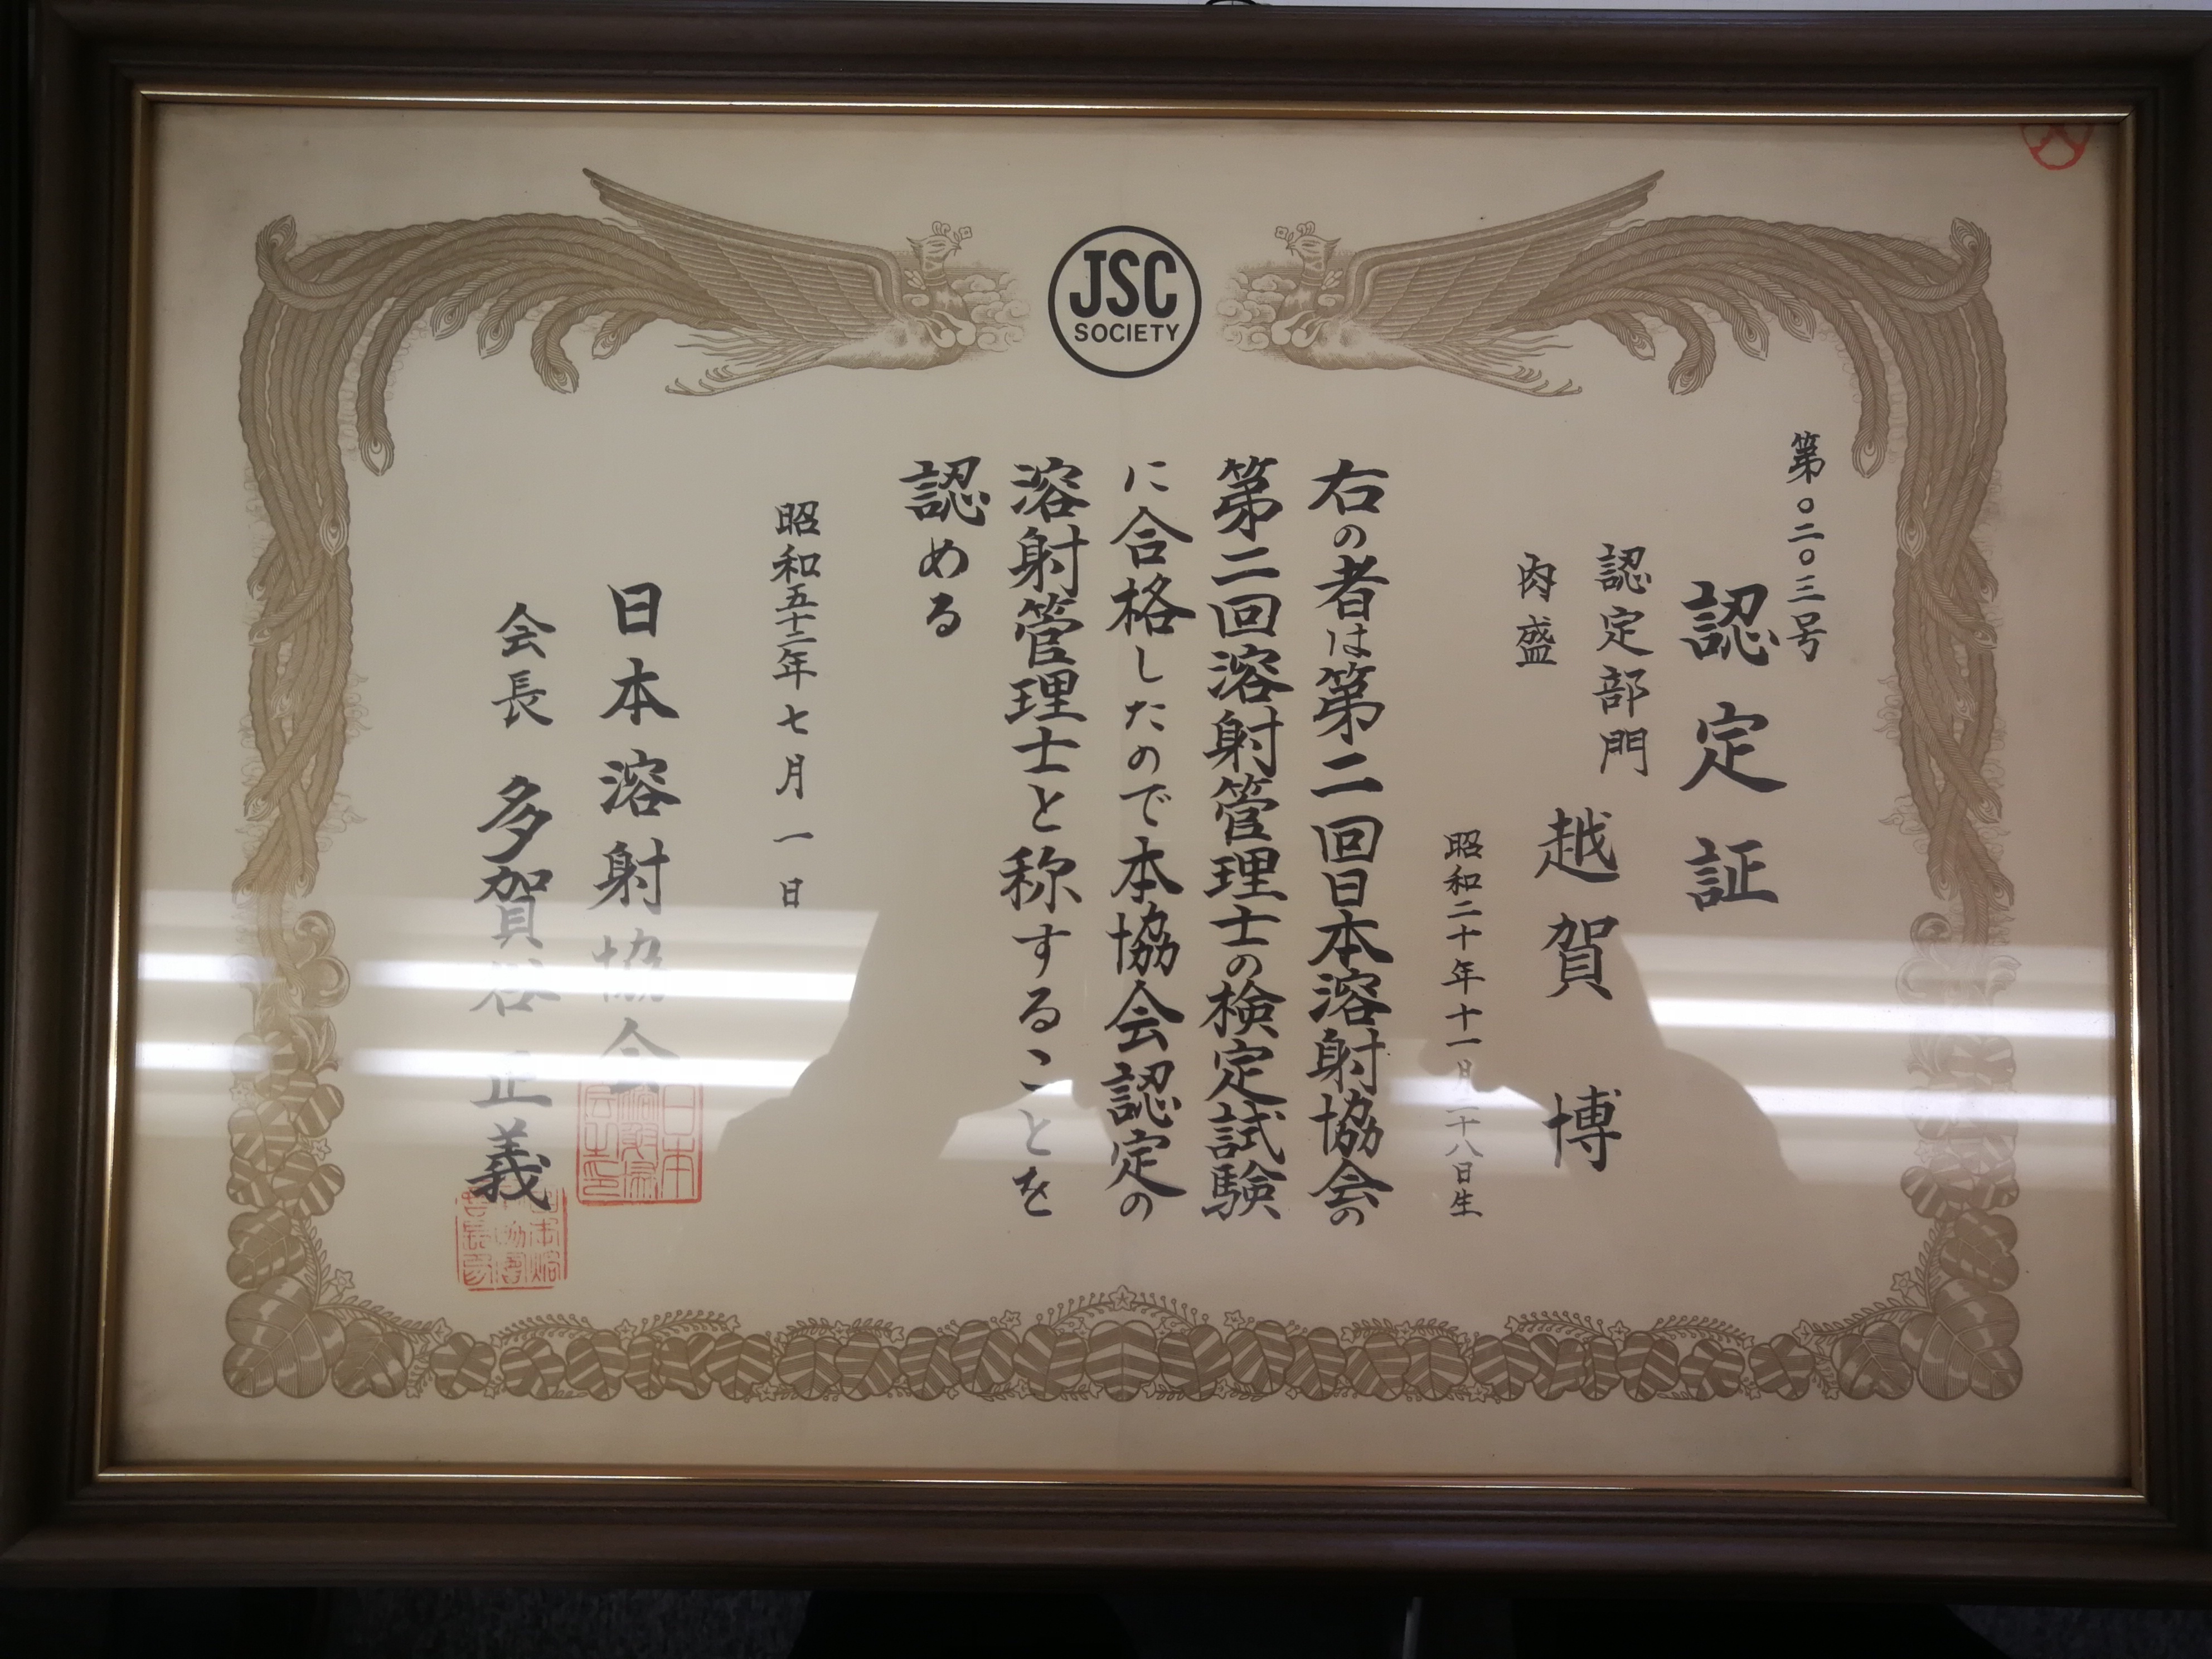 JSC
SOCIETY
第〇二〇三号
認定証
認定部門
肉盛
越賀博
昭和二十年十一月二十八日生
右の者は第二回日本溶射協会の
第二回溶射管理士の検定試験
に合格したので本協会認定の
溶射管理士と称することを
認める
昭和五十二年七月一日
日本溶射協会
会長 多賀谷正義